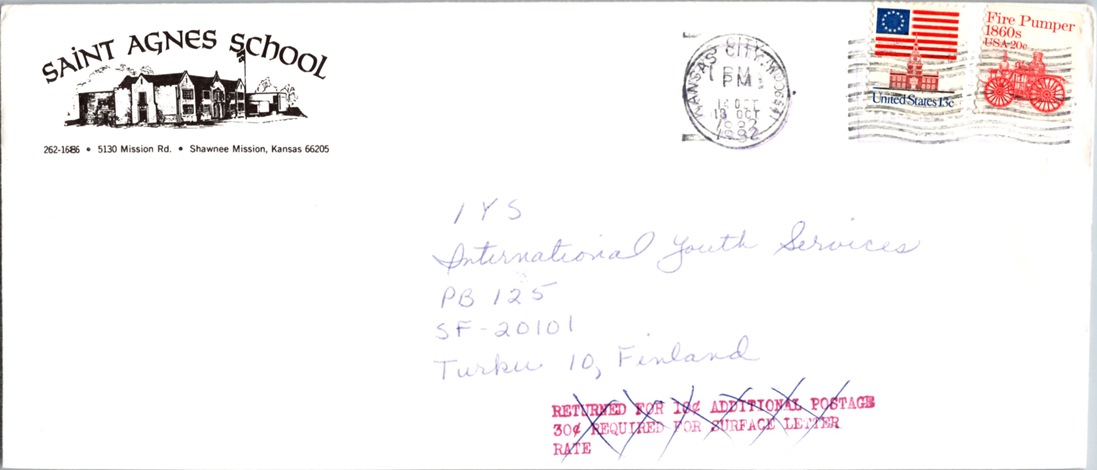 SAINT AGNES SCHOOL
262-1686 • 5130 Mission Rd. • Shawnee Mission, Kansas 66205
KANSAS CITY, MO
PM
PM
OCT
13 OCT
1982
1982
United States 13c
Fire Pumper
1860s
USA 20c
IYS
International Youth Services
PB 125
SF-20101
Turku 10, Finland
RETURNED FOR 10¢ ADDITIONAL POSTAGE
30¢ REQUIRED FOR SURFACE LETTER
RATE